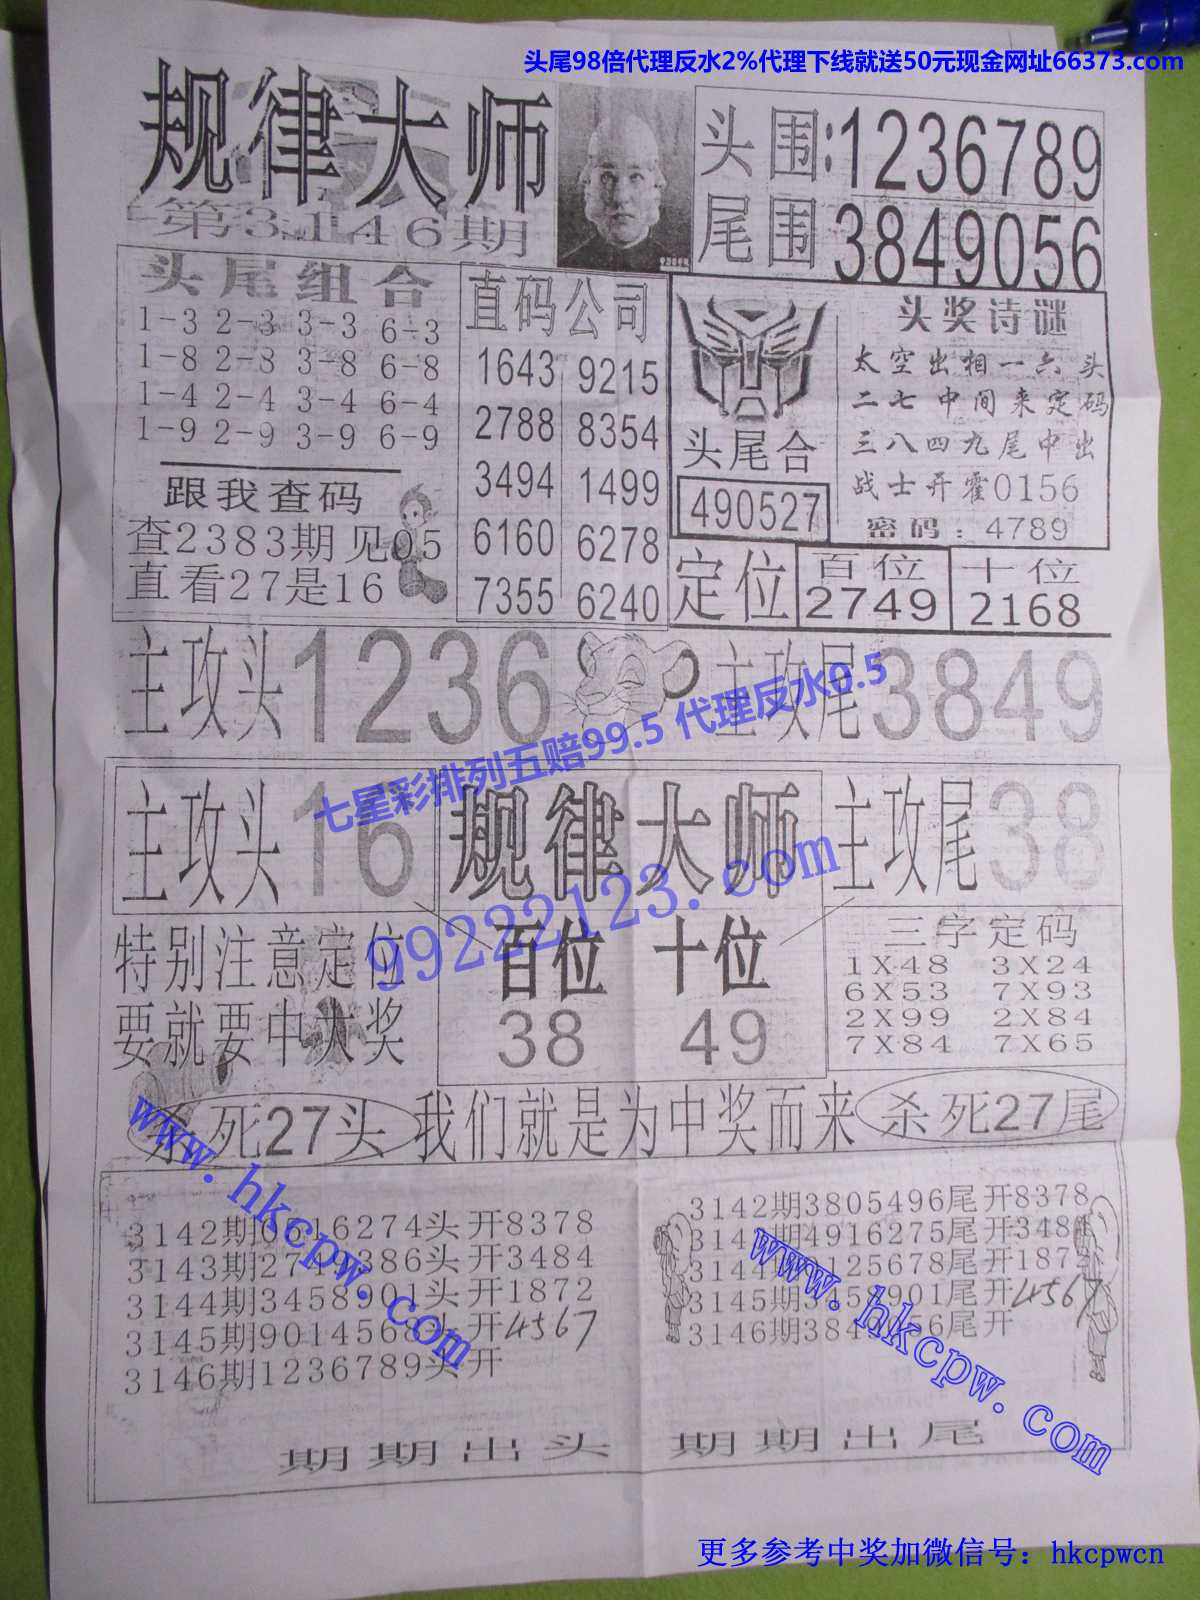 头尾98倍代理反水2%代理下线就送50元现金网址66373.com
规律大师
第3146期
头围:1236789
尾围 3849056
头尾组合
1-3 2-3 3-3 6-3
1-8 2-8 3-8 6-8
1-4 2-4 3-4 6-4
1-9 2-9 3-9 6-9
跟我查码
查2383期见05
直看27是16
直码公司
1643 9215
2788 8354
3494 1499
6160 6278
7355 6240
头尾合
490527
头奖诗谜
太空出相一六头
二七中间来定码
三八四九尾中出
战士开霍0156
密码：4789
定位
百位
2749
十位
2168
主攻头1236
主攻尾3849
七星彩排列五赔99.5 代理反水0.5
主攻头16
规律大师
主攻尾38
99222123.com
特别注意定位
要就要中大奖
百位 十位
38 49
三字定码
1X48 3X24
6X53 7X93
2X99 2X84
7X84 7X65
杀死27头
我们就是为中奖而来
杀死27尾
www.hkcpw.com
3142期0516274头开8378
3143期2749386头开3484
3144期3458901头开1872
3145期9014568头开4567
3146期1236789头开
期期出头
www.hkcpw.com
3142期3805496尾开8378
4916275尾开348
125678尾开187
3145期3458901尾开4567
3146期384 尾开
期期出尾
更多参考中奖加微信号：hkcpwcn